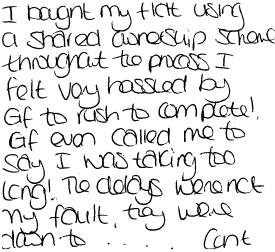 I bought my flat using
a shared ownership scheme
throughout the process I
felt very hassled by
GF to rush to complete!
GF even called me to
say I was taking too
long! The delays were not
my fault, they were
down to . . . . . . Cant